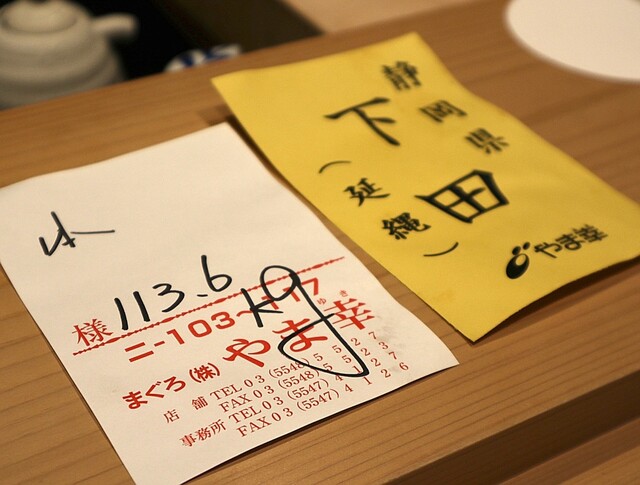 113.6kg
様
ニ-103~117
まぐろ(株)やま幸
ゆき
店 舗 TEL 03 (5548) 5 5 2 7
FAX 03 (5548) 5 5 2 3
事務所 TEL 03 (5547) 4 1 2 7
FAX 03 (5547) 4 1 2 6
静岡県
下田
(延縄)
やま幸